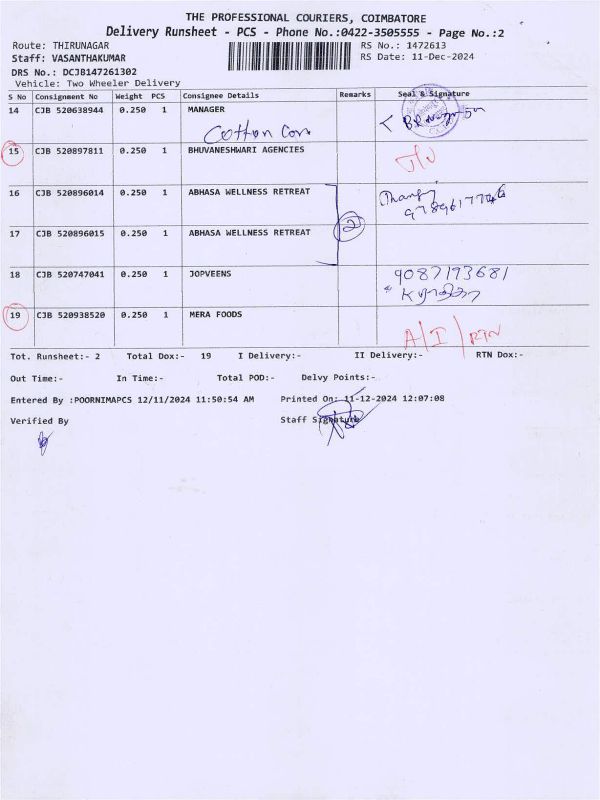 THE PROFESSIONAL COURIERS, COIMBATORE
Delivery Runsheet - PCS - Phone No.:0422-3505555 - Page No.:2
Route: THIRUNAGAR RS No.: 1472613
Staff: VASANTHAKUMAR RS Date: 11-Dec-2024
DRS No.: DCJB147261302
Vehicle: Two Wheeler Delivery
S No Consignment No Weight PCS Consignee Details Remarks Seal & Signature
14 CJB 520638944 0.250 1 MANAGER
Cotton Corn
15 CJB 520897811 0.250 1 BHUVANESHWARI AGENCIES
16 CJB 520896014 0.250 1 ABHASA WELLNESS RETREAT
2
17 CJB 520896015 0.250 1 ABHASA WELLNESS RETREAT
18 CJB 520747041 0.250 1 JOPVEENS 9087193681
19 CJB 520938520 0.250 1 MERA FOODS
A/I/RTN
Tot. Runsheet:- 2 Total Dox:- 19 I Delivery:- II Delivery:- RTN Dox:-
Out Time:- In Time:- Total POD:- Delvy Points:-
Entered By :POORNIMAPCS 12/11/2024 11:50:54 AM Printed On: 11-12-2024 12:07:08
Verified By Staff Signature